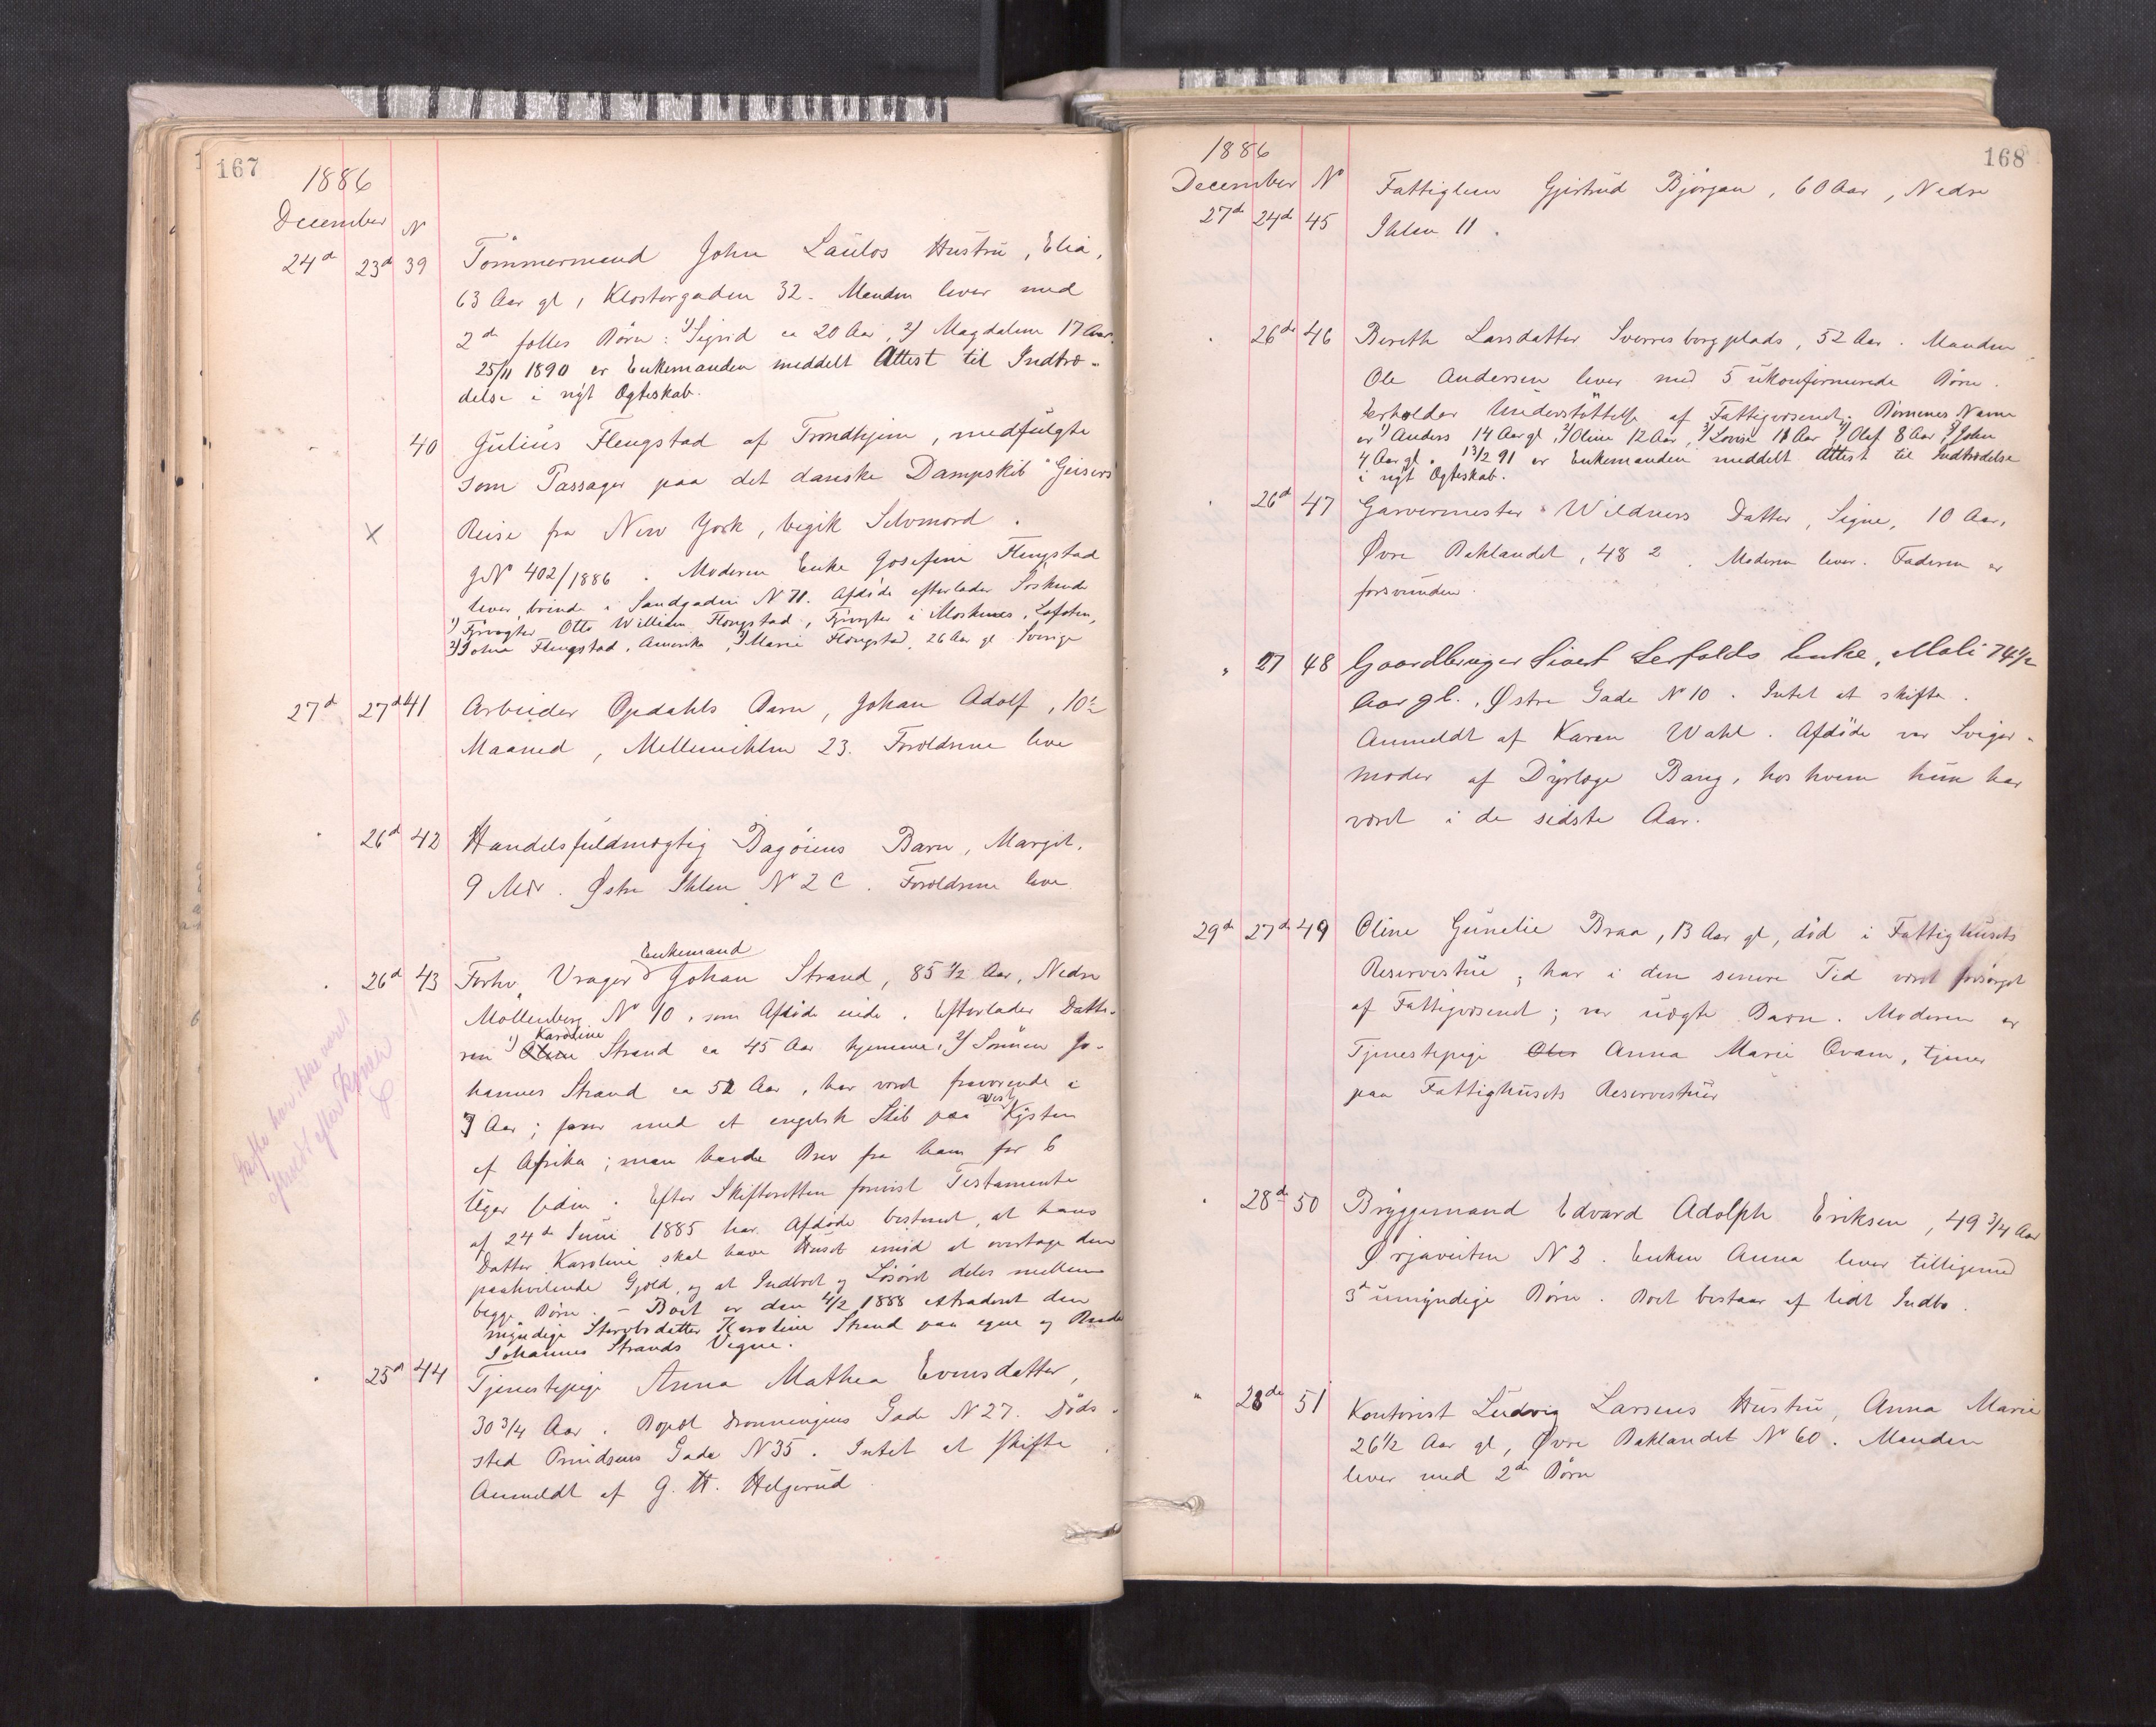 167
1886
December N
24d 23d 39 Tömmermand John Laulos Hustru, Elia,
63 Aar gl, Klostergaden 32. Manden lever med
2de fælles Börn: 1) Sigrid ca 20 Aar, 2) Magdalene 17 Aar.
25/11 1890 er Enkemanden meddelt Attest til Indtræ-
delse i nyt Ægteskab.
40 Julius Flengstad af Trondhjem, medfulgte
som Passager paa det danske Dampskib "Geisers
X Reise fra New York, begik Selvmord.
JN 402/1886. Moderen Enke Josefine Flengstad
lever, boende i Sandgaden N 71. Afdöde efterlader Söskende
1) Fyrvogter Otto William Flengstad, Fyrvogter i Moskenes, Lofoten,
2) Johan Flengstad, Amerika, 3) Marie Flengstad, 26 Aar gl Sverige
27d 27d 41 Arbeider Opdahls Barn, Johan Adolf, 10
Maaned, Mellemihlen 23. Forældrene leve
26d 42 Handelsfuldmægtig Bagöiens Barn, Margit,
9 Mdr. Østre Ihlen N 2 C. Forældrene leve
Enkemand
26d 43 Forhv. Vrager Johan Strand, 85 1/2 Aar, Nedre
Möllenberg N 10, som Afdöde eiede. Efterlader Datte-
Karoline
ren 1) Strand ca 45 Aar hjemme, 2) Sönnen Jo-
hannes Strand ca 52 Aar, har været fraværende i
Vest
9 Aar; farer med et engelsk Skib paa Kysten
af Afrika; man havde Brev fra ham for 6
Uger siden. Efter Skifteretten forevist Testamente
af 24de Juni 1885 har Afdöde bestemt, at hans
Datter Karoline skal have Huset imod at overtage den
paahvilende Gjæld, og at Indboet og Lösöret deles mellem
begge Börn. - Boet er den 4/2 1888 extraderet den
myndige Stervbodatter Karoline Strand paa egne og Broder
Johannes Strands Vegne.
25d 44 Tjenestepige Anna Mathea Evensdatter,
30 3/4 Aar. Bopæl Dronningens Gade N 27. Döds-
sted Prindsens Gade N 35. Intet at skifte.
Anmeldt af G. H. Helgerud
168
1886
December N Fattiglem Gjertrud Björgan, 60 Aar, Nedre
27de 24de 45 Ihlen 11.
26de 46 Bereth Larsdatter Sverresborgplads, 52 Aar. Manden
Ole Andersen lever med 5 ukonfirmerede Börn.
Erholder Understöttelse af Fattigvæsenet. Börnenes Navne
er 1) Anders 14 Aar gl, 2) Oline 12 Aar, 3) Lovise 11 Aar 4) Olaf 8 Aar, 5) John
4 Aar gl. 13/2 91 er Enkemanden meddelt Attest til Indtrædelse
i nyt Ægteskab.
26d 47 Garvermester Wildners Datter, Signe, 10 Aar,
Øvre Baklandet, 48 2. Moderen lever. Faderen er
forsvunden.
" 27 48 Gaardbruger Sivert Lerfalds Enke, Mali 74 1/2
Aar gl., Østre Gade N 10. Intet at skifte.
Anmeldt af Karen Wahl. Afdöde var Sviger-
moder af Dyrlæge Bang, hos hvem hun har
været i de sidste Aar.
29de 27de 49 Oline Gunelie Braa, 13 Aar gl, död i Fattighusets
Reservestue; har i den senere Tid været forsörget
af Fattigvæsenet; var uægte Barn. Moderen er
Tjenestepige Anna Marie Qvam, tjener
paa Fattighusets Reservestuer
28de 50 Bryggemand Edvard Adolph Eriksen, 49 3/4 Aar
Ørjaveiten N 2. Enken Anna lever tilligemed
3 umyndige Börn. Boet bestaar af lidt Indbo.
" 28de 51 Kontorist Ludvig Larsens Hustru, Anna Marie
26 1/2 Aar gl, Øvre Baklandet N 60. Manden
lever med 2de Börn